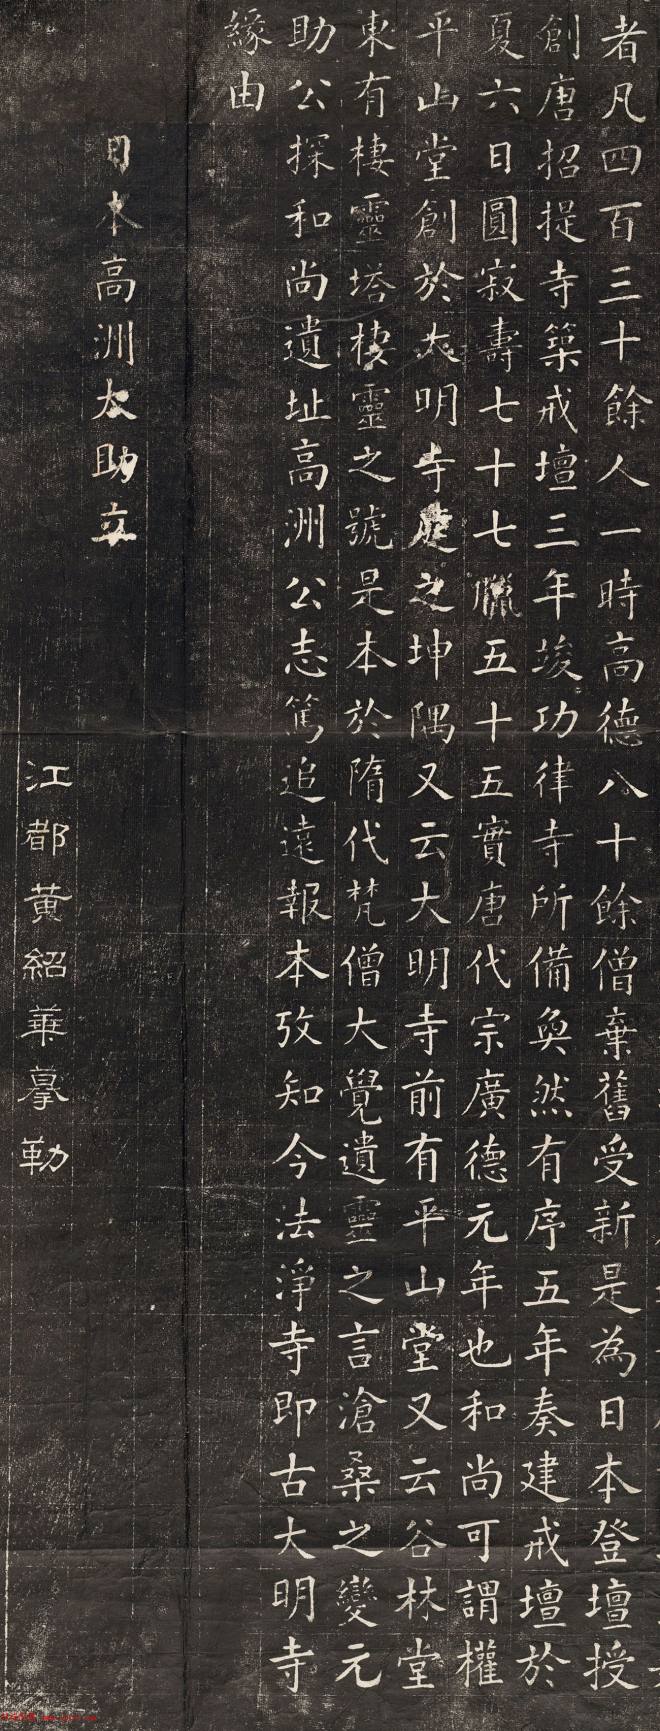 者凡四百三十餘人一時高德八十餘僧棄舊受新是為日本登壇授
創唐招提寺築戒壇三年竣功律寺所備奐然有序五年奏建戒壇於
夏六日圓寂壽七十七臘五十五實唐代宗廣德元年也和尚可謂權
平山堂創於大明寺庭之坤隅又云大明寺前有平山堂又云谷林堂
東有棲靈塔棲靈之號是本於隋代梵僧大覺遺靈之言滄桑之變元
助公探和尚遺址高洲公志篤追遠報本攷知今法淨寺即古大明寺
緣由
日本高洲太助立
江都黃紹華摹勒